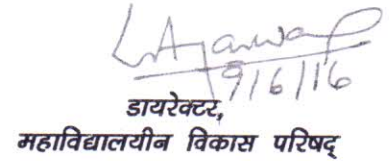 9/6/16
डायरेक्टर,
महाविद्यालयीन विकास परिषद्